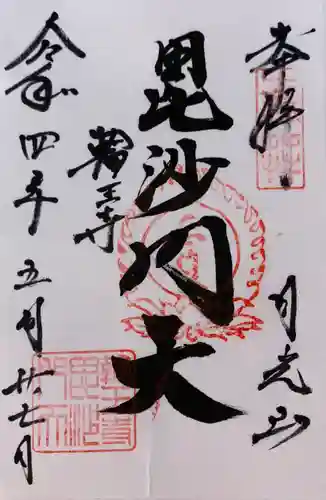 奉拝
月光山
毘沙門天
輪王寺
令和四年五月廿七日